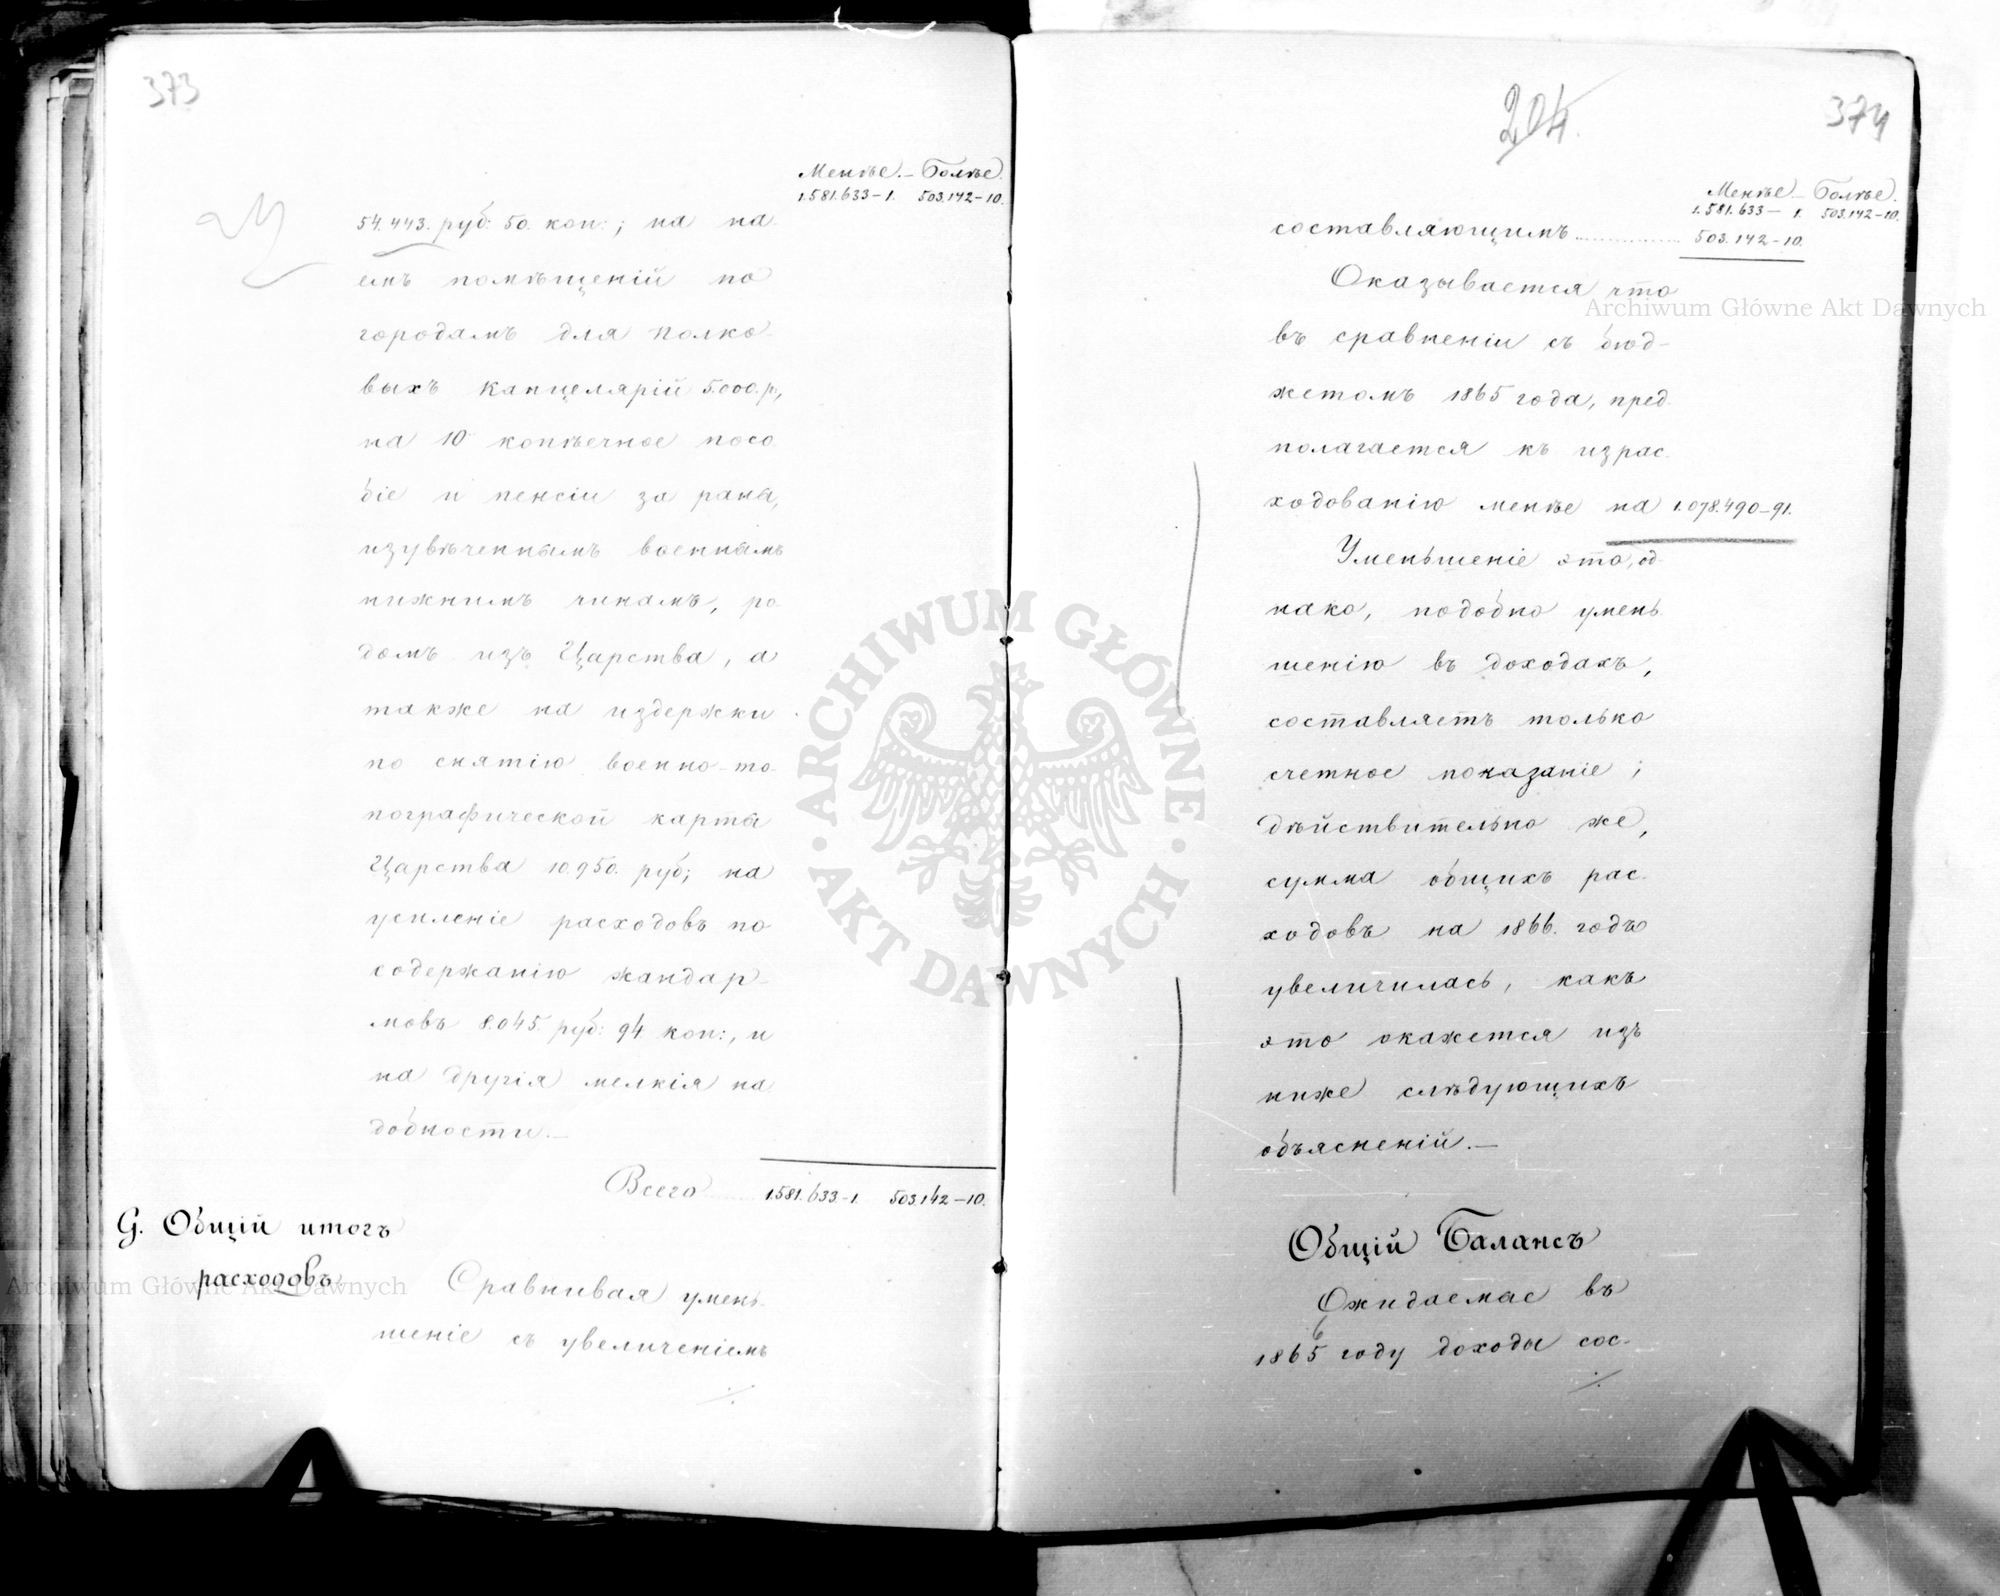 373
Менѣе. – Болѣе.
1.581.633 – 1. 503.142 – 10.
54.443. руб: 50. коп: ; на на-
емъ помѣщеній по
городамъ для полко-
выхъ Канцелярій 5.000. р,
на 10 копѣечное посо
біе и пенсіи за раны,
изувѣченнымъ военнымъ
нижнимъ чинамъ, ро
домъ изъ Царства, а
также на издержки
по снятію военно-то-
пографической карты
Царства 10.950. руб; на
усиленіе расходовъ по
содержанію жандар-
мовъ 8.045. руб: 94 коп:, и
на другія мелкія на
добности. –
Всего 1.581.633 – 1. 503.142 – 10.
G. Общій итогъ
расходовъ.
Сравнивая умень-
шеніе съ увеличеніемъ
204.
374
Менѣе – Болѣе.
1.581.633 – 1. 503.142 – 10.
составляющимъ 503.142 – 10.
Оказывается что
въ сравненіи съ бюд-
жетомъ 1865 года, пред
полагается къ израс-
ходованію менѣе на 1.078.490 – 91.
Уменьшеніе это, од-
нако, подобно умень
шенію въ доходахъ,
составляетъ только
счетное показаніе ;
дѣйствительно же,
сумма общихъ рас-
ходовъ на 1866. годъ
увеличилась, какъ
это окажется изъ
ниже слѣдующихъ
объясненій. –
Общій Балансъ
Ожидаемые въ
1865 году доходы сос-
Archiwum Główne Akt Dawnych
Archiwum Główne Akt Dawnych
ARCHIWUM GŁÓWNE · AKT DAWNYCH ·